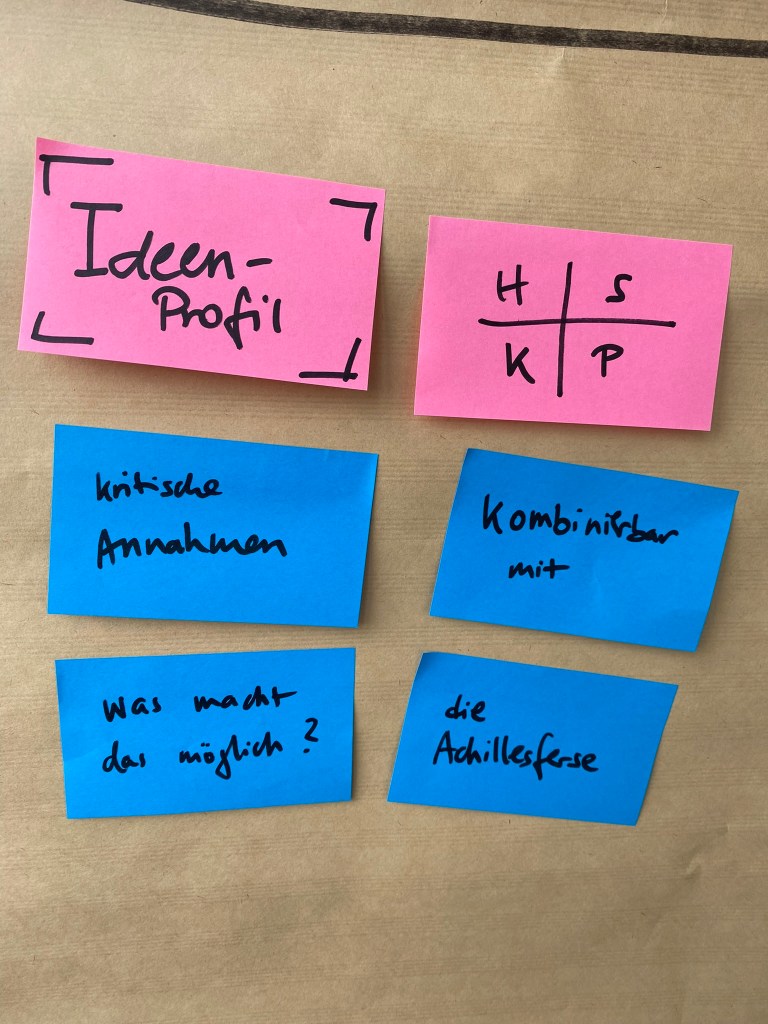 Ideen-
Profil
H S
K P
kritische
Annahmen
Kombinierbar
mit
was macht
das möglich?
die
Achillesferse